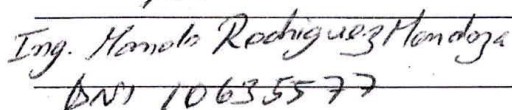 Ing. Manolo Rodriguez Mendoza
DNI 10635577